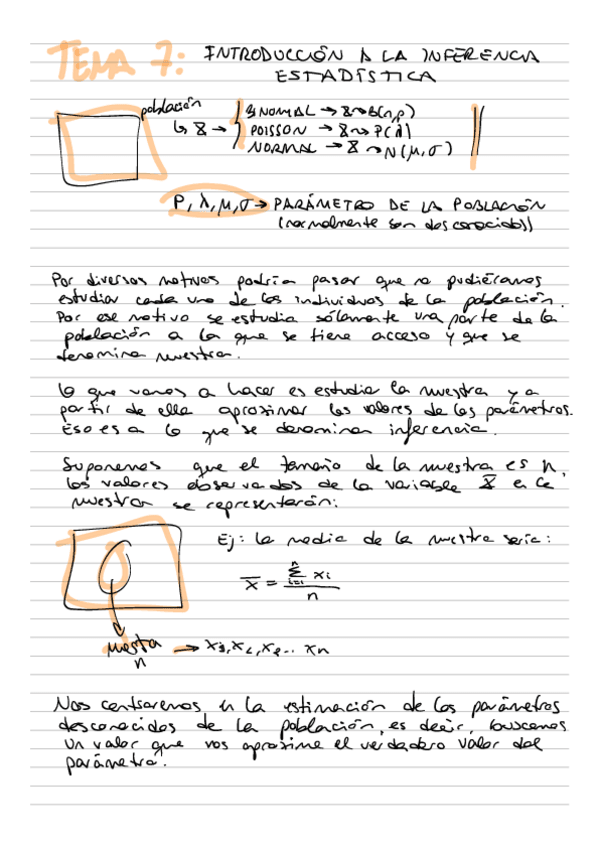 TEMA 7: INTRODUCCIÓN A LA INFERENCIA
ESTADÍSTICA
población
↳ X → BINOMIAL → X ~> B(n,p)
POISSON → X ~> P(λ)
NORMAL → X ~> N(μ, σ)
P, λ, μ, σ → PARÁMETRO DE LA POBLACIÓN
(normalmente son desconocidos)
Por diversos motivos podría pasar que no pudiéramos
estudiar cada uno de los individuos de la población.
Por ese motivo se estudia sólamente una parte de la
población a la que se tiene acceso y que se
denomina muestra.
Lo que vamos a hacer es estudiar la muestra y a
partir de ella aproximar los valores de los parámetros.
Eso es a lo que se denomina inferencia.
Suponemos que el tamaño de la muestra es n,
los valores observados de la variable X en la
muestra se representarán:
Ej: la media de la muestra sería:
x̄ = Σ(i=1, n) xi / n
muestra
n → x1, x2, x3... xn
Nos centraremos en la estimación de los parámetros
desconocidos de la población, es decir, buscamos
un valor que nos aproxime el verdadero valor del
parámetro.